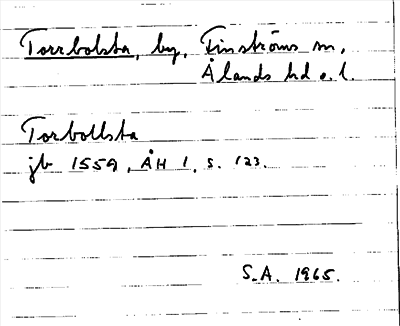 Torrbolsta, by, Finströms sn,
Ålands hd o. l.
Torbollsta
jb 1559, ÅH 1, s. 123.
S.A. 1965.